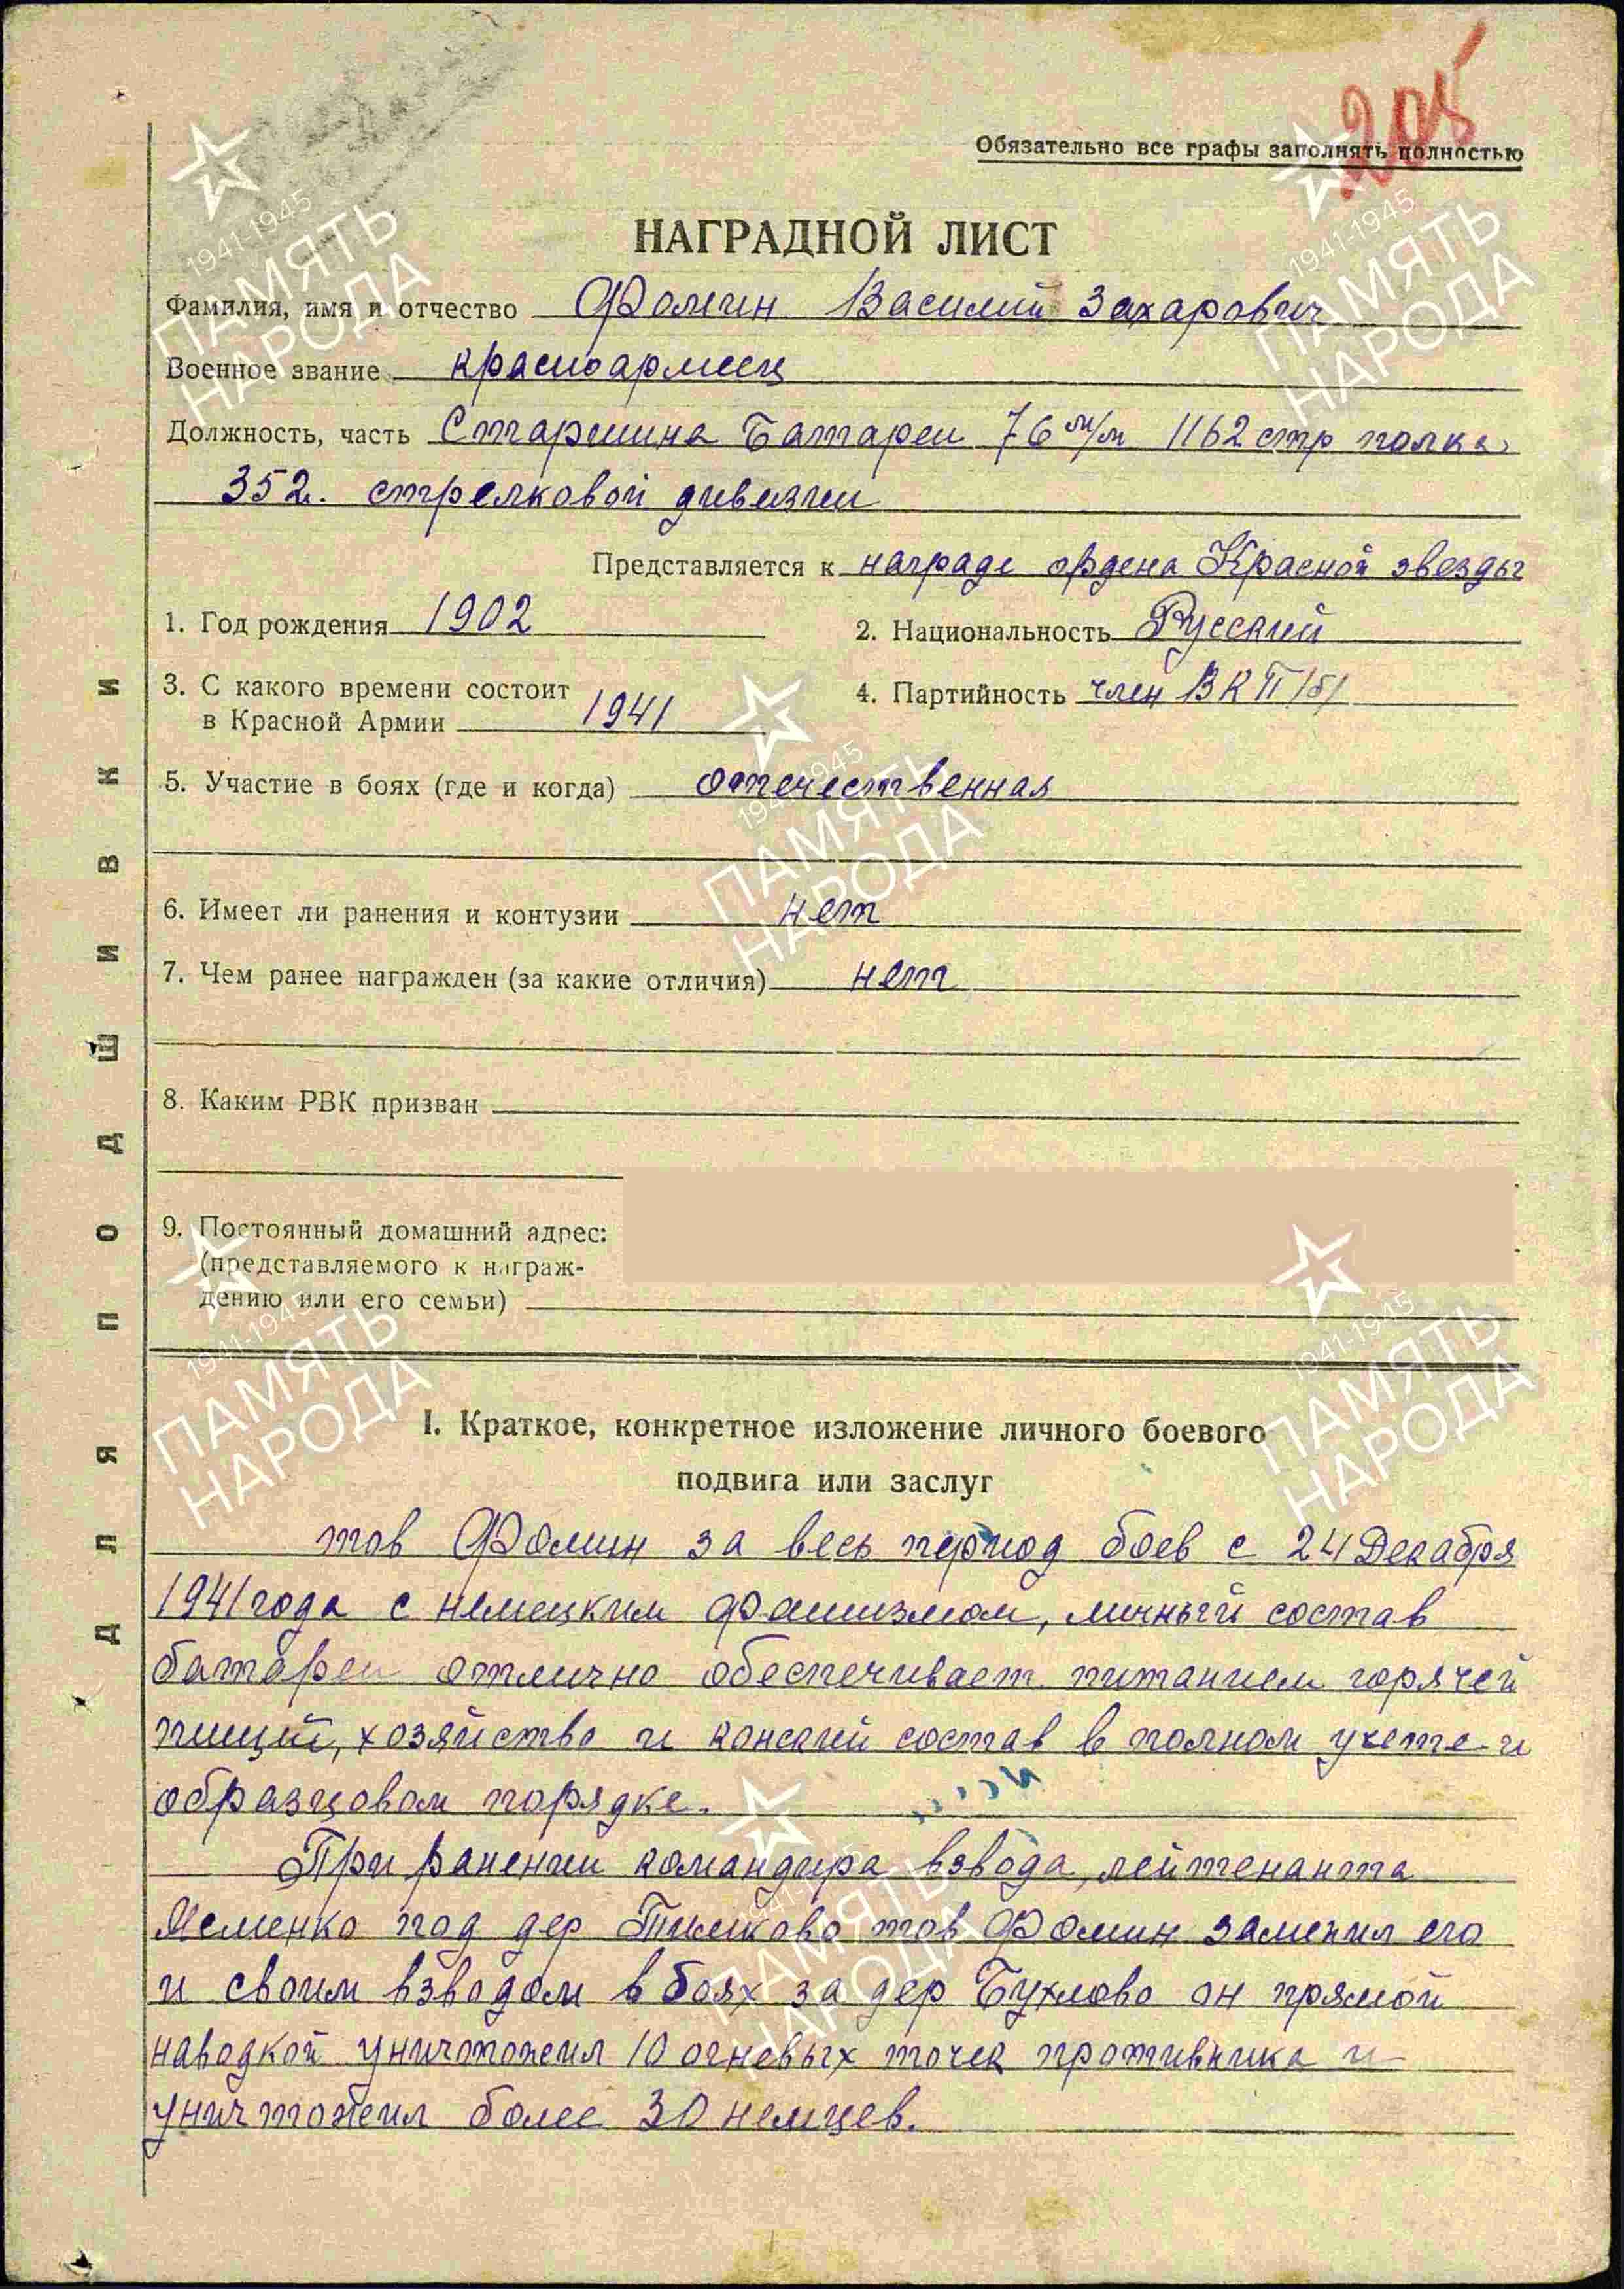 205
Обязательно все графы заполнять полностью
НАГРАДНОЙ ЛИСТ
Фамилия, имя и отчество Фомин Василий Захарович
Военное звание красноармеец
Должность, часть Старшина Батареи 76 м/м 1162 стр полка
352. стрелковой дивизии
Представляется к награде ордена Красной звезды
1. Год рождения 1902
2. Национальность Русский
3. С какого времени состоит
в Красной Армии 1941
4. Партийность член ВКП/б/
5. Участие в боях (где и когда) отечественная
6. Имеет ли ранения и контузии нет
7. Чем ранее награжден (за какие отличия) нет
8. Каким РВК призван
9. Постоянный домашний адрес:
(представляемого к награж-
дению или его семьи)
I. Краткое, конкретное изложение личного боевого
подвига или заслуг
тов Фомин за весь период боев с 24 Декабря
1941 года с немецким фашизмом, личный состав
батареи отлично обеспечивает питанием горячей
пищей, хозяйство и конский состав в полном учете и
образцовом порядке.
При ранении командира взвода, лейтенанта
Ясменко под дер Тимково тов Фомин заменил его
и своим взводом в боях за дер Бухлово он прямой
наводкой уничтожил 10 огневых точек противника и
уничтожил более 30 немцев.
ДЛЯ ПОДШИВКИ
1941-1945
ПАМЯТЬ
НАРОДА
1941-1945
ПАМЯТЬ
НАРОДА
1941-1945
ПАМЯТЬ
НАРОДА
1941-1945
ПАМЯТЬ
НАРОДА
1941-1945
ПАМЯТЬ
НАРОДА
ПАМЯТЬ
НАРОДА